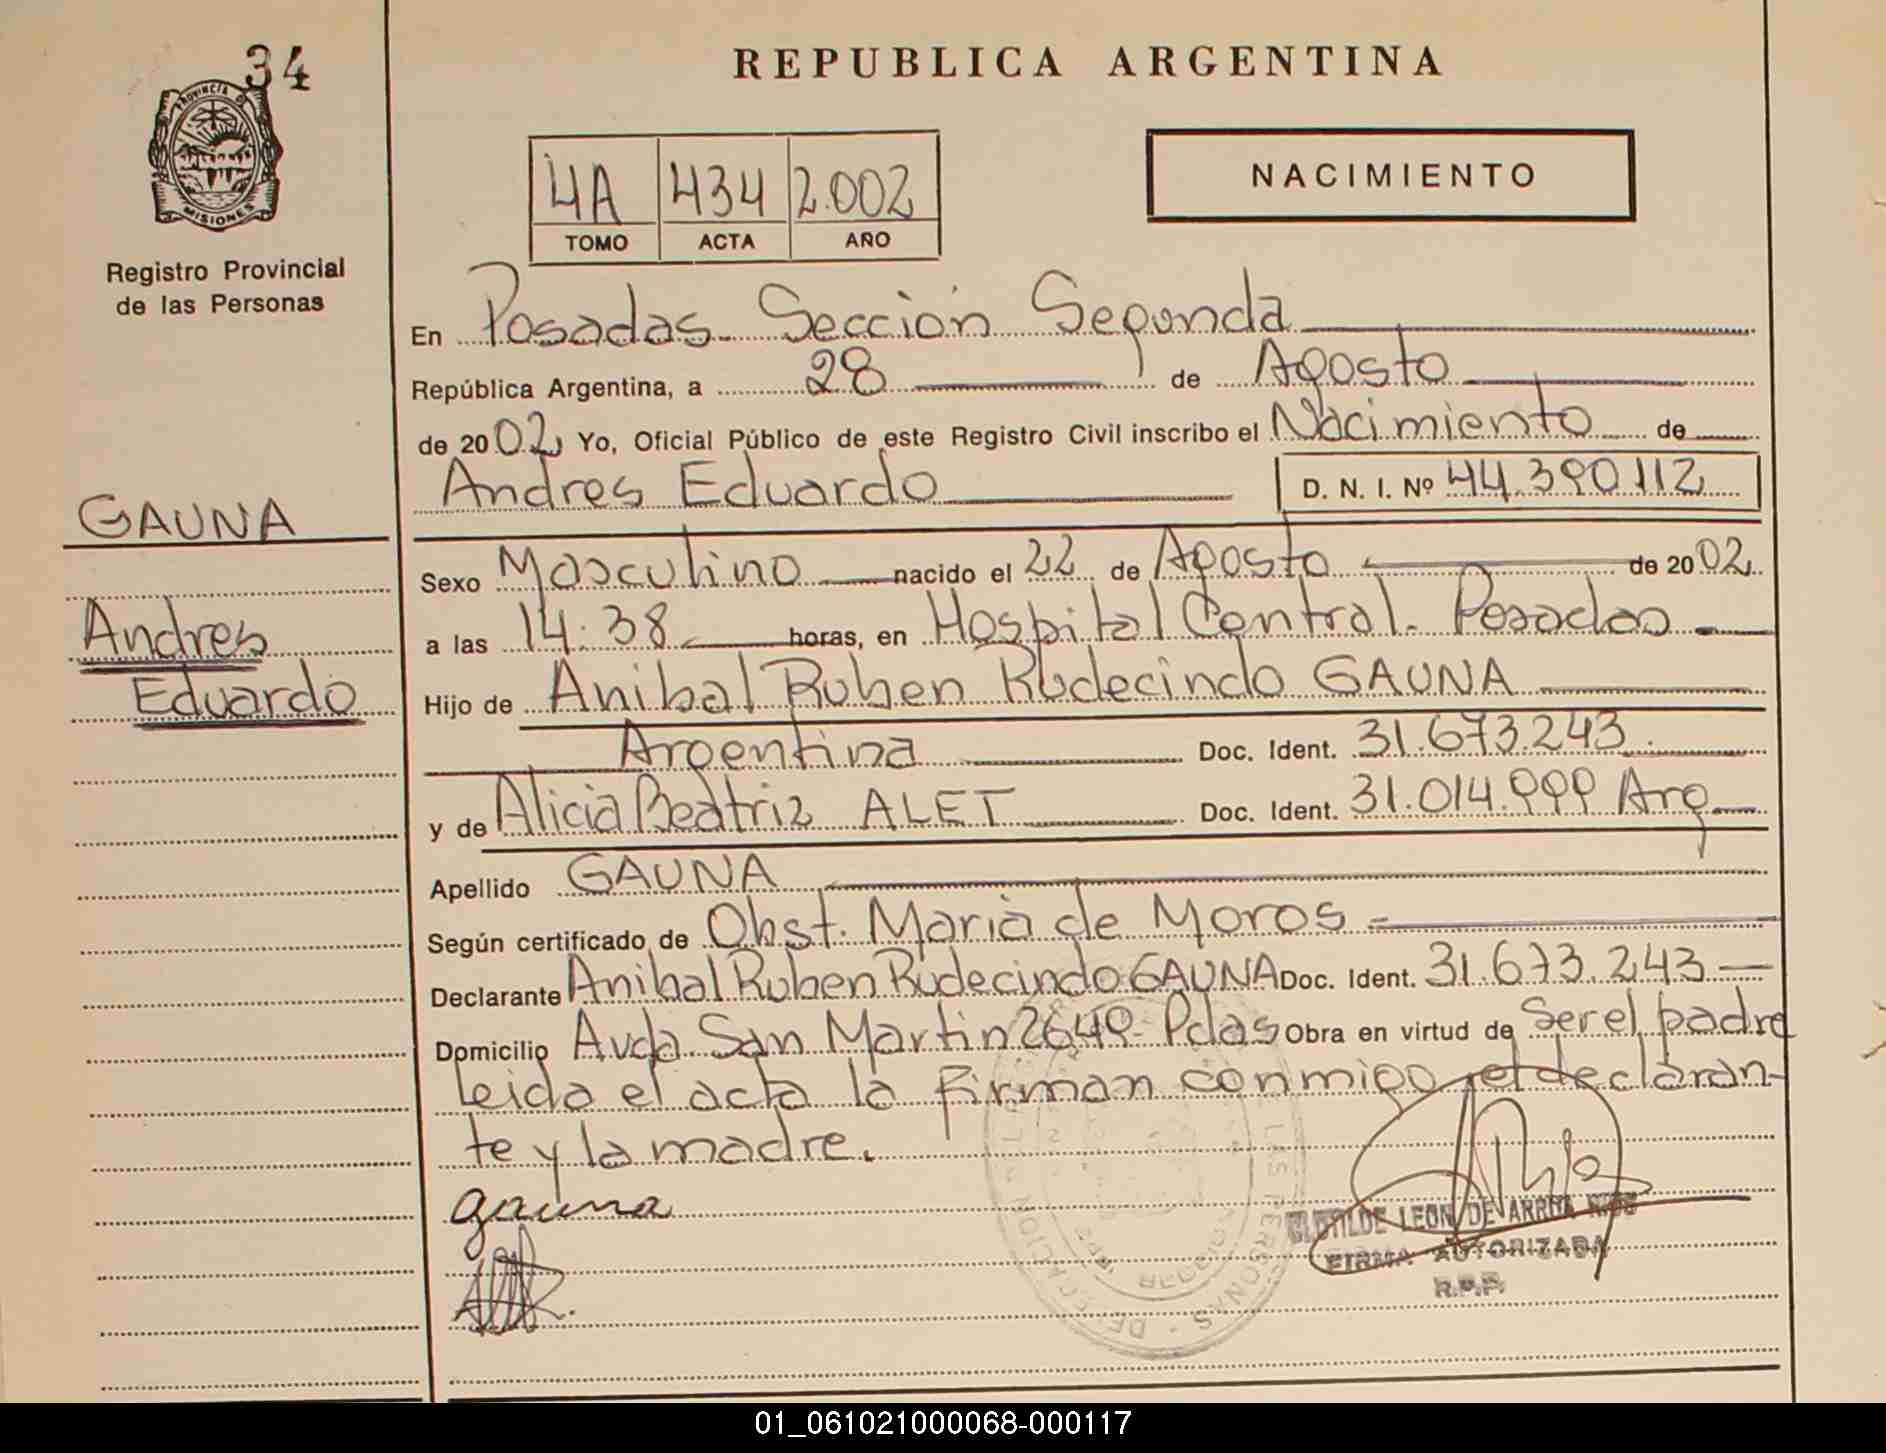 34
PROVINCIA DE
MISIONES
Registro Provincial
de las Personas
GAUNA
Andres
Eduardo
REPUBLICA ARGENTINA
4A 434 2.002
TOMO ACTA AÑO
NACIMIENTO
En Posadas Sección Segunda
República Argentina, a 28 de Agosto
de 2002 Yo, Oficial Público de este Registro Civil inscribo el Nacimiento de
Andres Eduardo D. N. I. Nº 44.390.112
Sexo Masculino nacido el 22 de Agosto de 2002
a las 14.38 horas, en Hospital Central. Posadas
Hijo de Anibal Ruben Rudecindo GAUNA
Argentina Doc. Ident. 31.673.243
y de Alicia Beatriz ALET Doc. Ident. 31.014.999 Arg
Apellido GAUNA
Según certificado de Obst. Maria de Moros
Declarante Anibal Ruben Rudecindo GAUNA Doc. Ident. 31.673.243
Domicilio Avda San Martin 2649 Pdas Obra en virtud de Ser el padre
Leida el acta la firman conmigo el declaran-
te y la madre.
gauna
LEON DE ARRUA
FIRMA AUTORIZADA
R.P.P.
LAS PERSONAS - DE
01_061021000068-000117